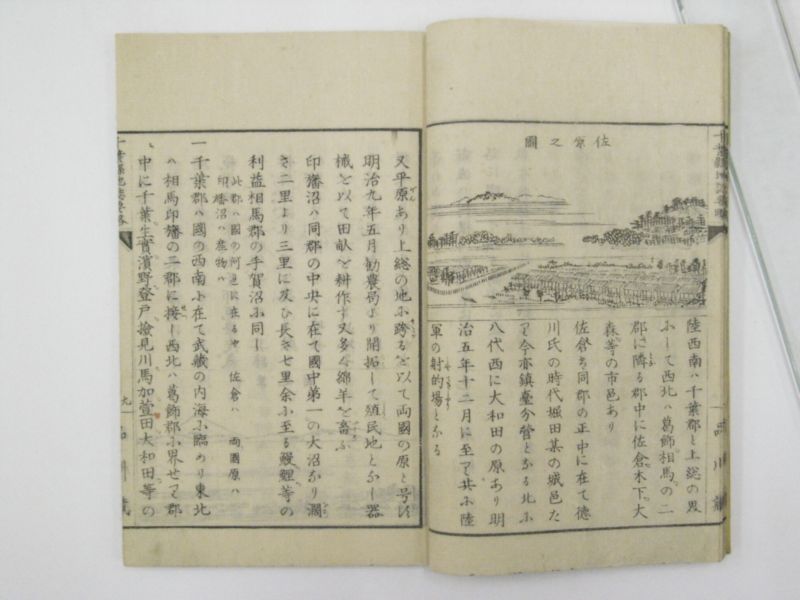 佐原之圖
陸西南ハ千葉郡と上総の界
ふして西北ハ葛飾相馬の二
郡に隣る郡中に佐倉木下大
森等の市邑あり
佐倉ハ同郡の正中に在て德
川氏の時代堀田某の城邑た
り今亦鎮臺分營となる北ふ
八代西に大和田の原あり明
治五年十二月に至て共ふ陸
軍の射的場となる
又平原あり上総の地ふ跨るを以て両國の原と号す
明治九年五月勧農局より開拓して殖民地となし器
械を以て田畝を耕作す又多く綿羊を畜ふ
印旛沼ハ同郡の中央に在て國中第一の大沼なり濶
さ二里より三里に及ひ長さ七里余ふ至る鰻鯉等の
利益相馬郡の手賀沼ふ同し
此郡ハ國の何邊に在るや 佐倉ハ 両國原ハ
印旛沼ハ 産物ハ
一千葉郡ハ國の西南ふ在て武蔵の内海ふ臨めり東北
ハ相馬印旛の二郡に接し西北ハ葛飾郡ふ界せり郡
中に千葉生實濱野登戸撿見川馬加萱田大和田等の
九